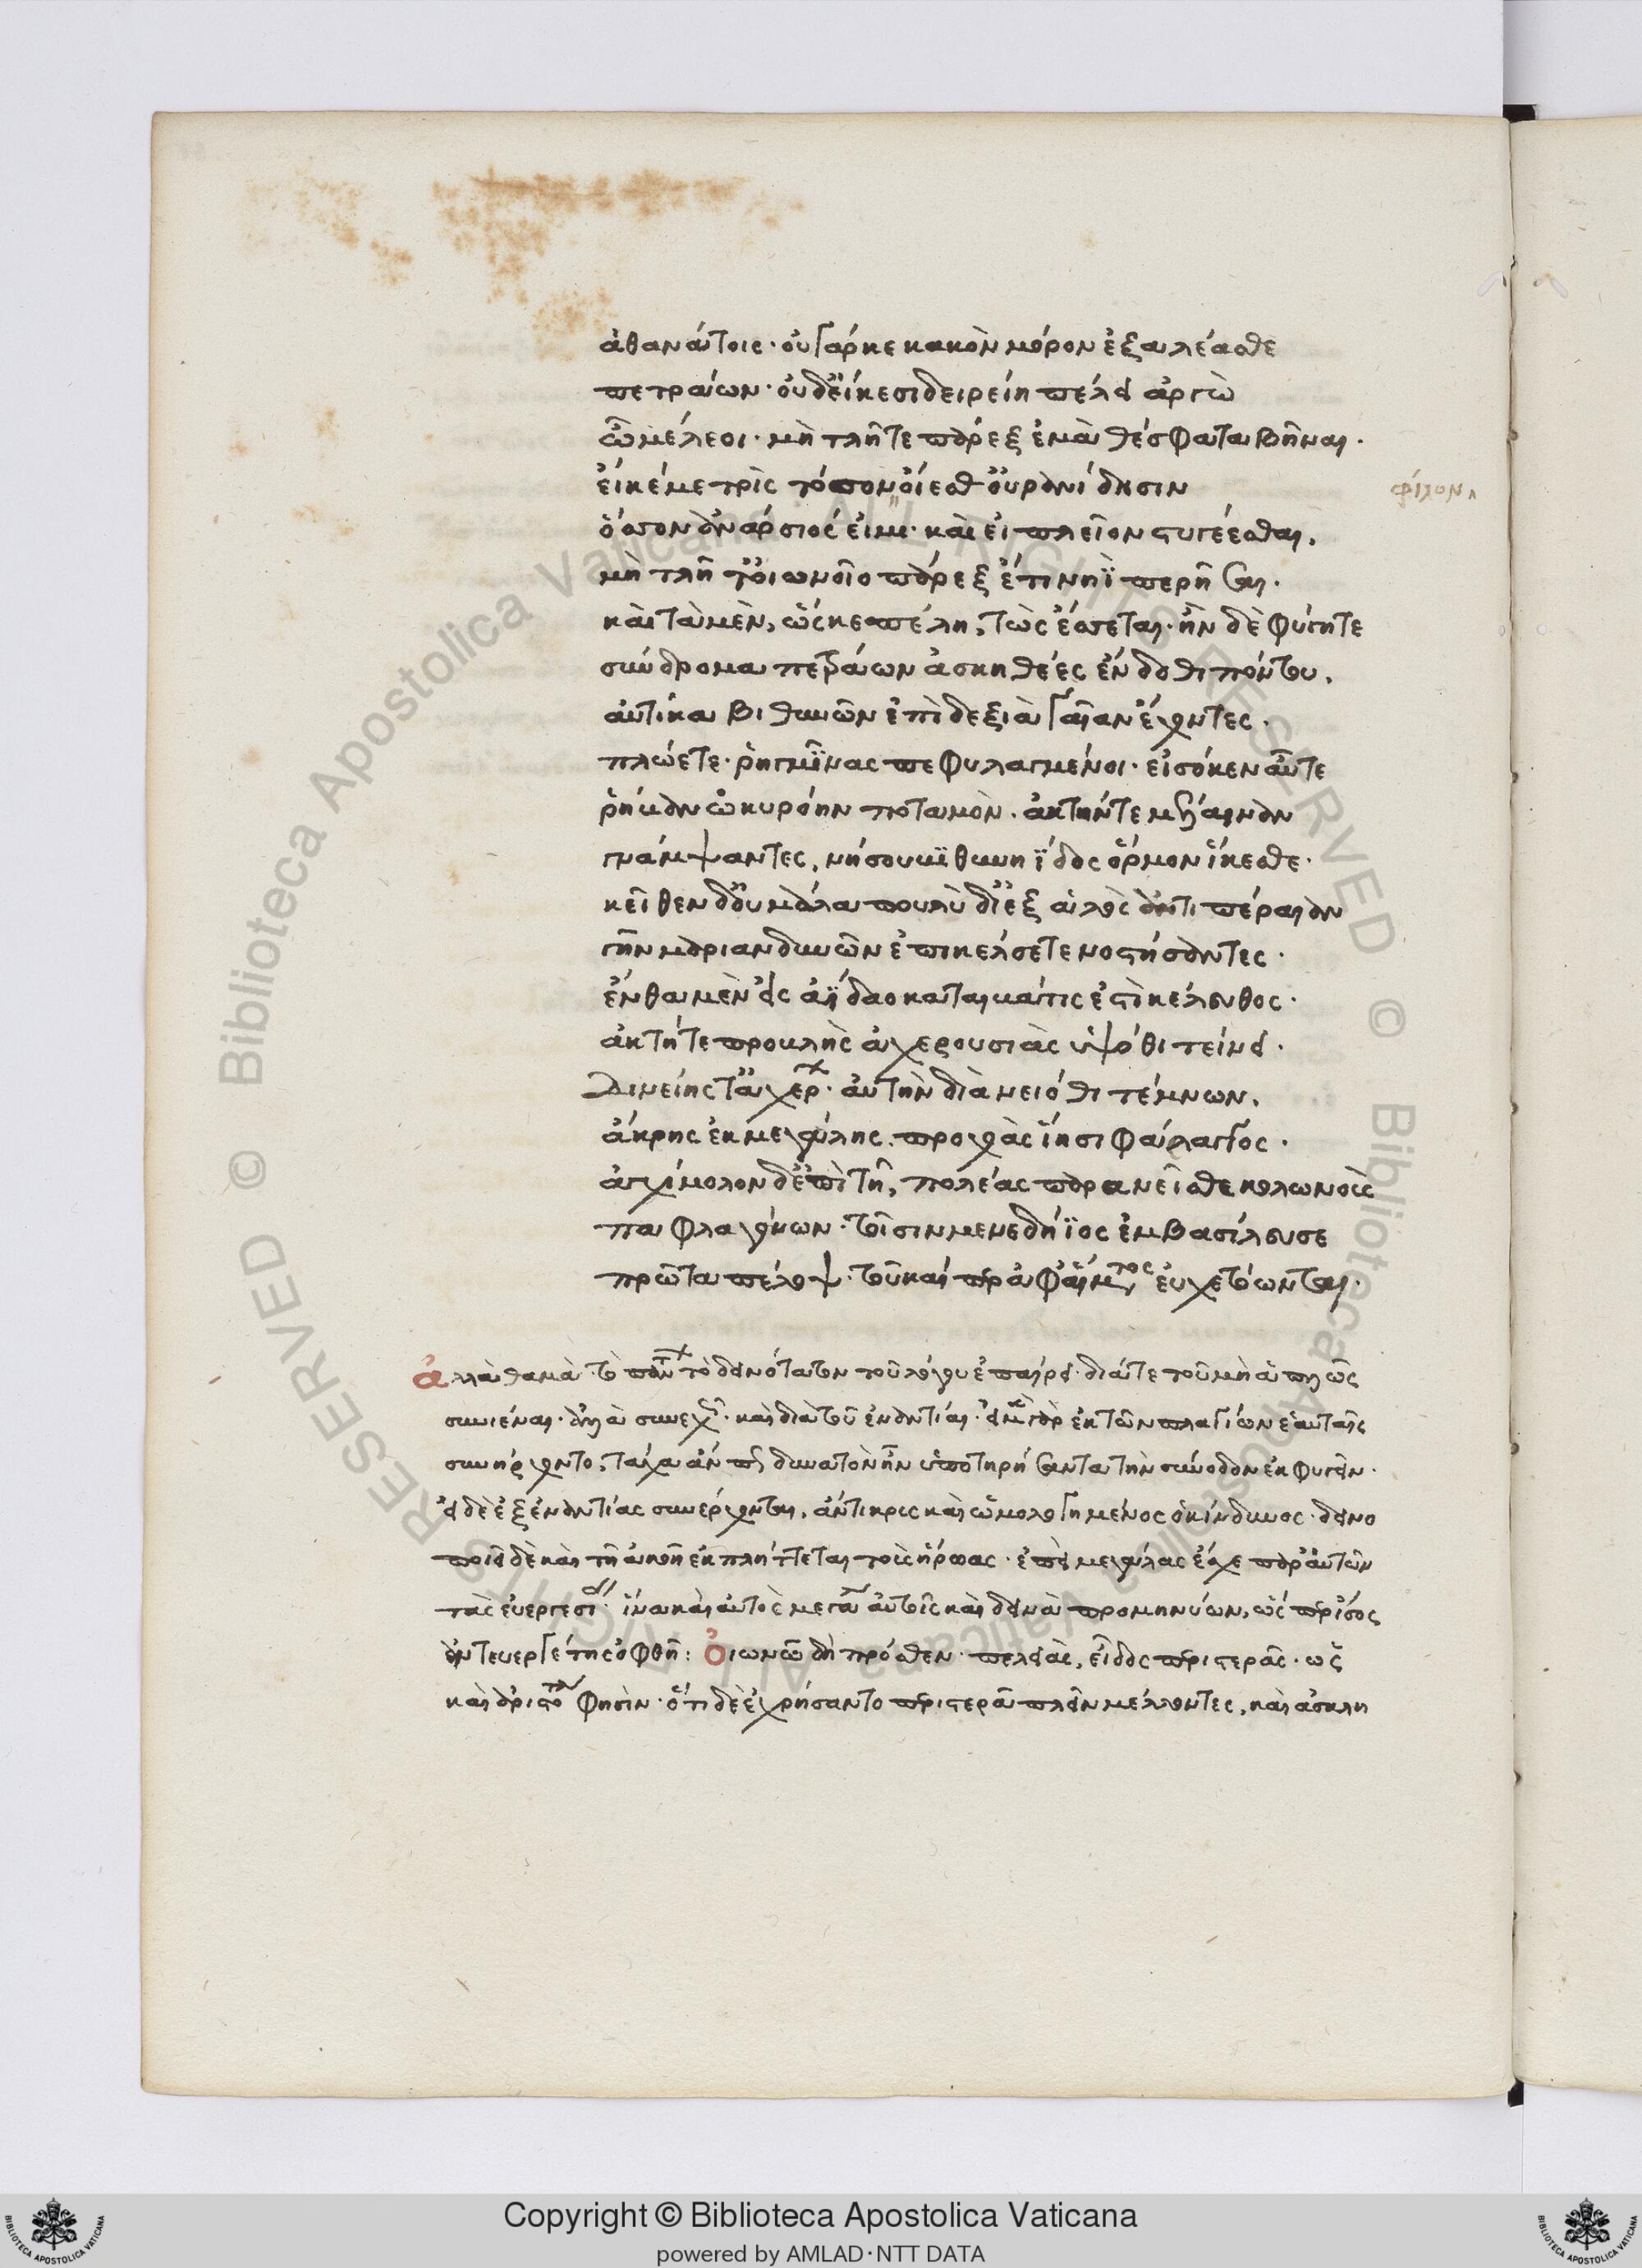 ἀθανάτοις· οὐ γάρ κε κακὸν μόρον ἐξαλέασθε
πετράων· οὐδ' εἴ κε σιδηρείη πέλει ἀργώ
ὦ μέλεοι· μὴ τλῆτε παρὲξ ἐμὰ θέσφατα βῆναι·
εἴ κέ με τρὶς τόσον οἴεσθ' οὐρανίδησιν
φίλον
ὅσσον ἀνάρσιός εἰμι· καὶ εἰ πλεῖον στυγέεσθαι.
μὴ τλῆτ' οἰωνοῖο παρὲξ ἔτι νηῒ περῆσαι·
καὶ τὰ μὲν, ὥς κε πέλη, τὼς ἔσσεται· ἢν δὲ φύγητε
σύνδρομα πετράων ἀσκηθέες ἔνδοθι πόντου.
αὐτίκα βιθυνῶν ἐπὶ δεξιὰ γαῖαν ἔχοντες.
πλώετε· ῥηγμῖνας πεφυλαγμένοι· εἰσόκεν αὖτε
ῥήβαν ὠκυρόην ποταμὸν· ἀκτήν τε μέλαιναν
γνάμψαντες, νήσου θυνηΐδος ὅρμον ἵκεσθε·
κεῖθεν δ' οὐ μάλα πουλὺ διὲξ ἁλὸς ἀντιπέραιαν
γῆν μαριανδυνῶν ἐπικέλσετε νοστήσαντες·
ἔνθα μὲν εἰς ἀΐδαο καταιβάτις ἐστὶ κέλευθος·
ἀκτή τε προβλὴς ἀχερουσιὰς ὑψόθι τείνει·
δινείης τ' ἀχέρ αὐτὴν διὰ νειόθι τέμνων.
ἄκρης ἐκ μεγάλης προχοὰς ἵησι φάραγγος·
ἀγχίμολον δ' ἐπὶ τῇ, πολέας παρανεῖσθε κολωνοὺς
παφλαγόνων· τοῖσίν μ' ἐνεδήϊος ἐμβασίλευσε
πρῶτα πέλοψ· τοῦ καί περ ἀφ' αἵματος εὐχετόωνται·
ἀλλὰ θαμὰ· τὸ δεινότατον τοῦ λόγου ἐπαίρει· διά τε τοῦ μὴ ἁπλῶς
συνιέναι· ἀλλὰ συνεχ· καὶ διὰ τοῦ ἐναντίαι· εἰ μὲν γὰρ ἐκ τῶν πλαγίων ἑαυταῖς
συνήρχοντο, τάχα ἄν δυνατὸν ἦν ὑποτηρήσαντα τὴν σύνοδον ἐκφυγεῖν·
εἰ δὲ ἐξ ἐναντίας συνέρχονται, ἄντικρις καὶ ὡμολογημένος ὁ κίνδυνος· δεινο
ποιεῖ δὲ καὶ τῇ ἀκοῇ ἐκπλήττεται τοὺς ἥρωας· ἐπεὶ μεγάλας ἔσχε παρ' αὐτῶν
τὰς εὐεργεσί· ἵνα καὶ αὐτὸς μεγάλα αὐτοῖς καὶ δεινὰ προμηνύων, ὥς περ ἴσος
ἀντευεργέτης ὀφθῇ: οἰωνῷ δὴ πρόσθεν· πελειὰς, εἶδος περιστερᾶς· ὡς
καὶ ἀριστο φησὶν· ὅτι δὲ ἐχρήσαντο περιστερᾷ πλεῖν μέλλοντες, καὶ ἀσκλη
Copyright © Biblioteca Apostolica Vaticana
powered by AMLAD·NTT DATA